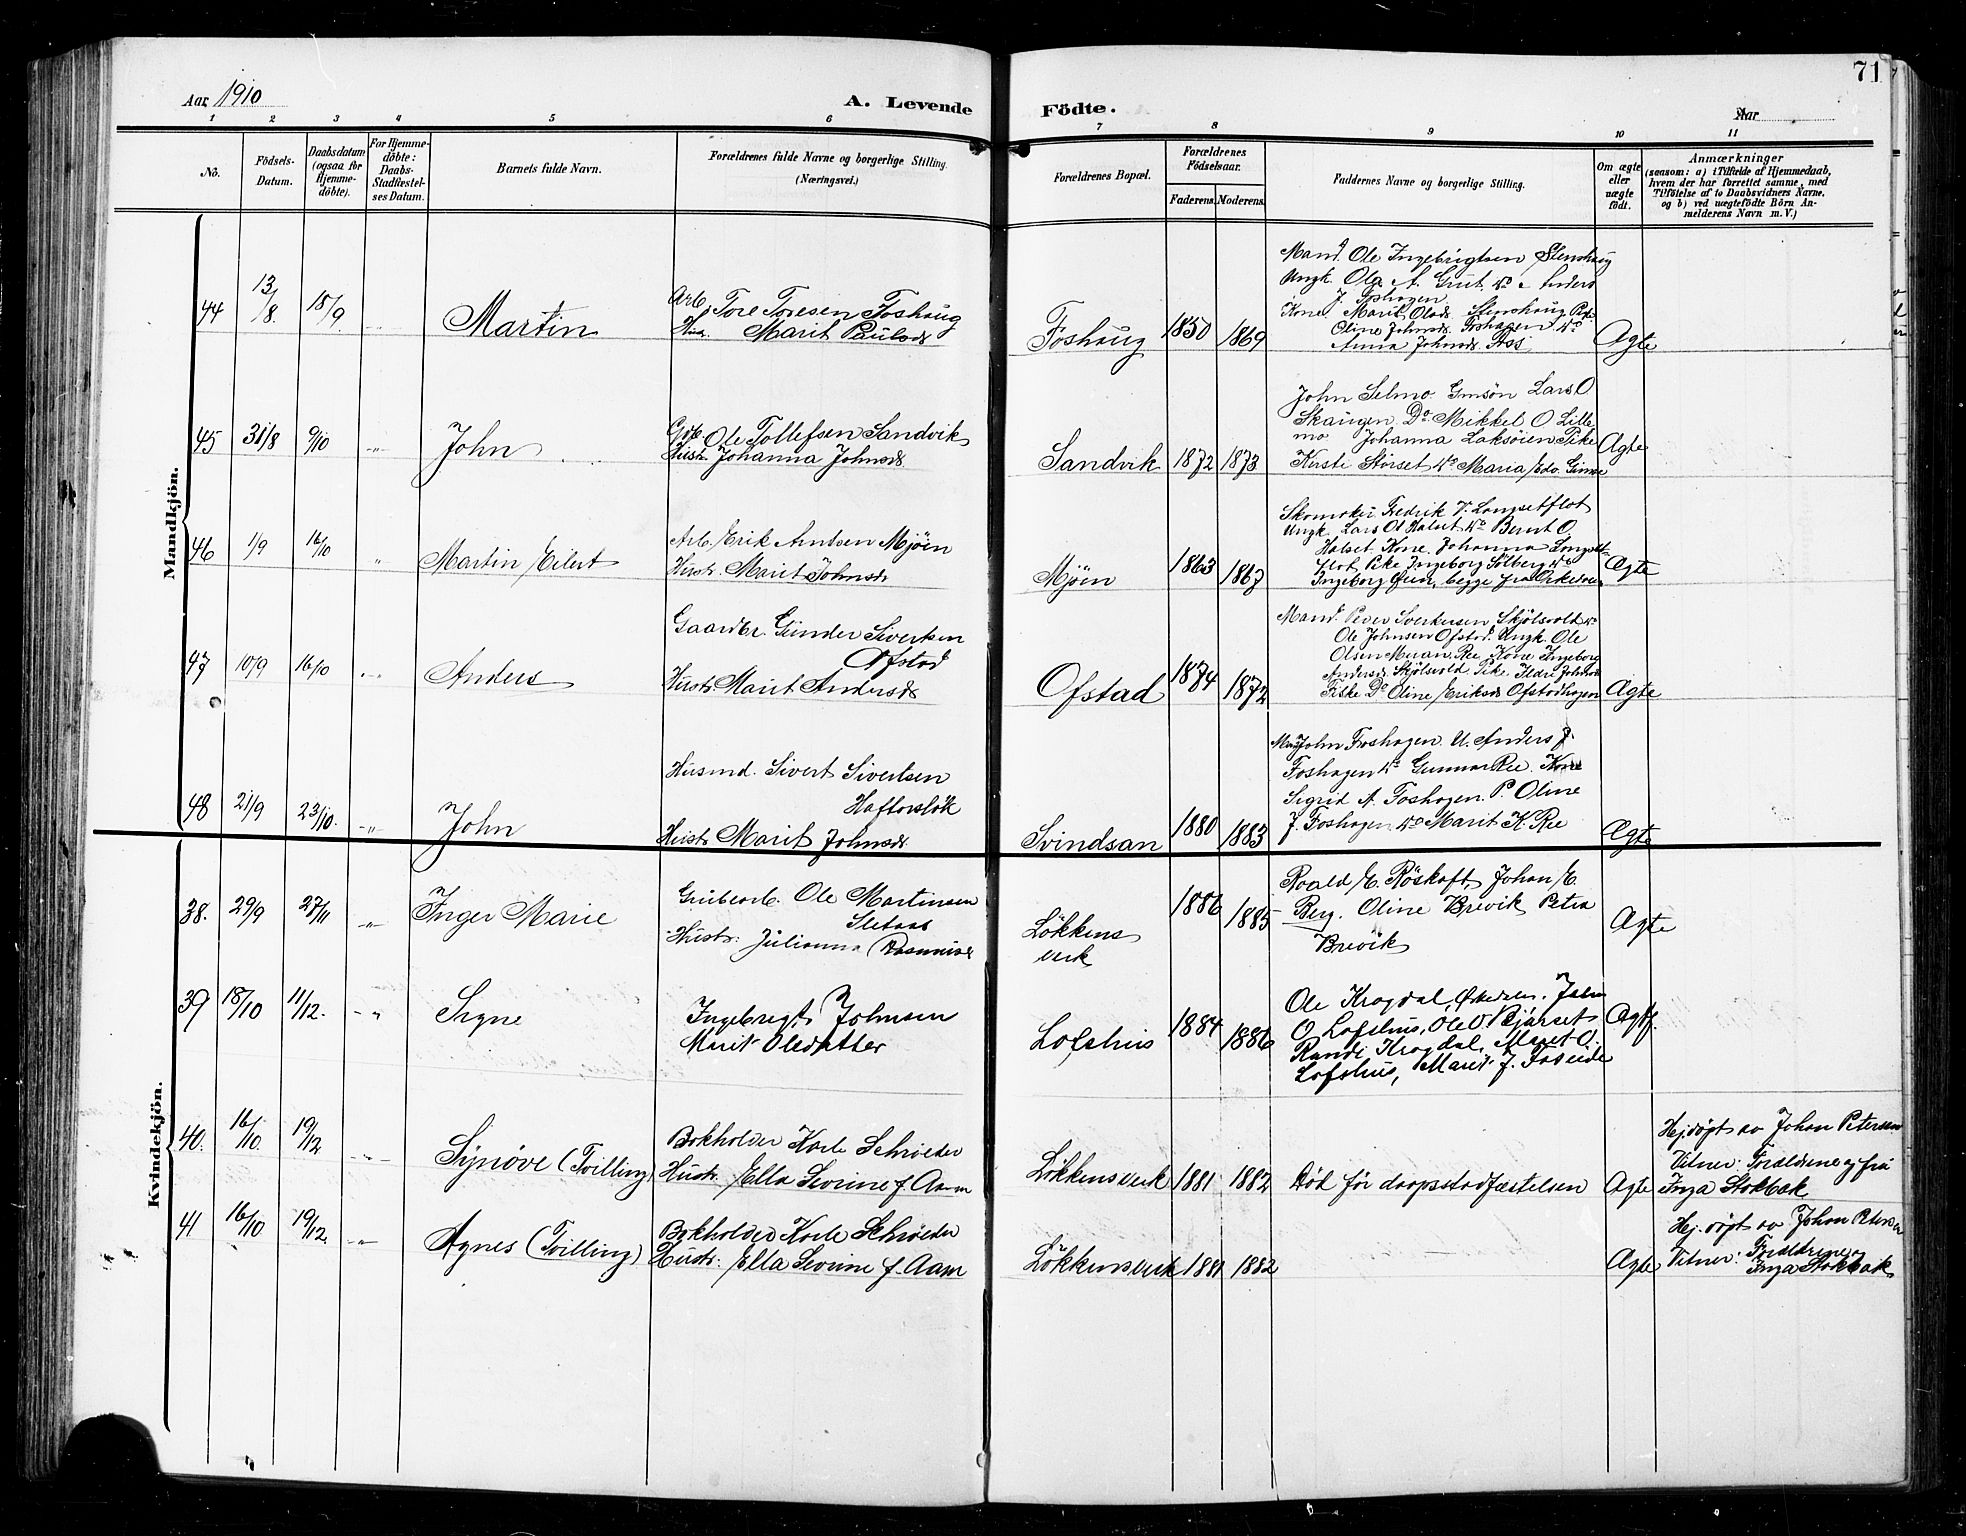 71
Aar 1910
A. Levende Födte.
Aar
1 2 3 4 5 6 7 8 9 10 11
No.
Födsels-Datum.
Daabsdatum (ogsaa for Hjemme-döbte).
For Hjemme-döbte: Daabs-Stadfæstel-ses Datum.
Barnets fulde Navn.
Forældrenes fulde Navne og borgerlige Stilling. (Næringsvei.)
Forældrenes Bopæl.
Forældrenes Födselsaar.
Faderens. Moderens.
Faddernes Navne og borgerlige Stilling.
Om ægte eller uægte födt.
Anmærkninger
(saasom: a) i Tilfælde af Hjemmedaab,
hvem der har forrettet samme, med
Tilföielse af to Daabsvidners Navne,
og b) ved uægtefödte Börn An-
melderens Navn m. V.)
Mandkjön.
44 13/8. 18/9. Martin
Arb. Tore Toresen Foshaug
Hus. Marit Paulsdr
Foshaug 1850 1869
Mand. Ole Ingebrigtsen Stenshaug
Ungk. Ole A. Grut, do Anders
J. Foshagen
Kone Marit Olsdr. Stenshaug
Oline Johnsdr. Foshagen do
Anna Johnsdr.
Ægte
45 31/8 9/10 John
Ole Tollefsen Sandvik
Hustr. Johanna Johnsdr
Sandvik 1872 1873
John Selmo. Lars O
Skaugen. Do Mikkel O Lille
mo Johanna Laksöien Pike
Kirsti Störset do Maria
Ægte
46 1/9 16/10 Martin Eilert
Arb. Erik Arntsen Mjöen
Hustr. Marit Johnsdr
Mjöen 1863 1867
Skomaker Fredrik V. Langsetflot
Ungk. Lars O Halset do Bernt O
Halset. Kone. Johanna Langset-
flot. Pike Ingeborg Solberg do
Ingeborg begge fra Orkedalen
Ægte
47 10/9 16/10 Anders
Gaardbr. Gunder Sivertsen
Ofstad
Hustr Marit Andersdr
Ofstad 1874 1872
Mand. Peder Sverkersen Skjölsvold do
Ole Johnsen Ofstad. Ungk. Ole
Olsen Moan. Kone Ingeborg
Andersdr Skjölsvold Pike. Ildri Johnsdr
Fiske Do Oline Eriksdr Ofstadhagen
Ægte
48 21/9 23/10. John
Husmd. Sivert Sivertsen
Haftorslök
Hustr Marit Johnsdr
Svindsan 1880 1883
John Foshagen. U. Anders J.
Foshagen do Gunnar Ree. Kone
Sigrid A. Foshagen. P. Oline
J. Foshagen do Marit K. Ree
Ægte
Kvindekjön.
38. 29/9 27/11 Inger Marie
Grubearb. Ole Martinsen
Sletaas
Hustr: Julianna
Lökkens
verk
1886 1885
Roald E. Röskaft, Johan E.
Berg. Oline Brevik Petra
Brevik
Ægte
39 18/10 11/12. Signe
Ingebrigt Johnsen
Marit Olsdatter
Lofshus 1884 1886
Ole Krogdal, Orkedalen. John
O. Lofshus, Ole O. Bjørset
Randi Krogdal, Maret O.
Lofshus, Marit J.
Ægte
40. 16/10 19/12 Synøve (Tvilling)
Bokholder Karle Schrøeder
Hustr. Ella Sevrine f. Aam
Løkkensverk 1881 1882
Død før daapsstadfæstelsen
Ægte
Hj.døpt av Johan Petersen
Vitner: Forældrene og frk
Inga Stokbak
41 16/10 19/12 Agnes (Tvilling)
Bokholder Karle Schrøeder
Hustr: Ella Sevrine f. Aam
Løkkensverk 1881 1882
Ægte
Hj.døpt av Johan Petersen
Vitner: Forældrene og
Inga Stokbak